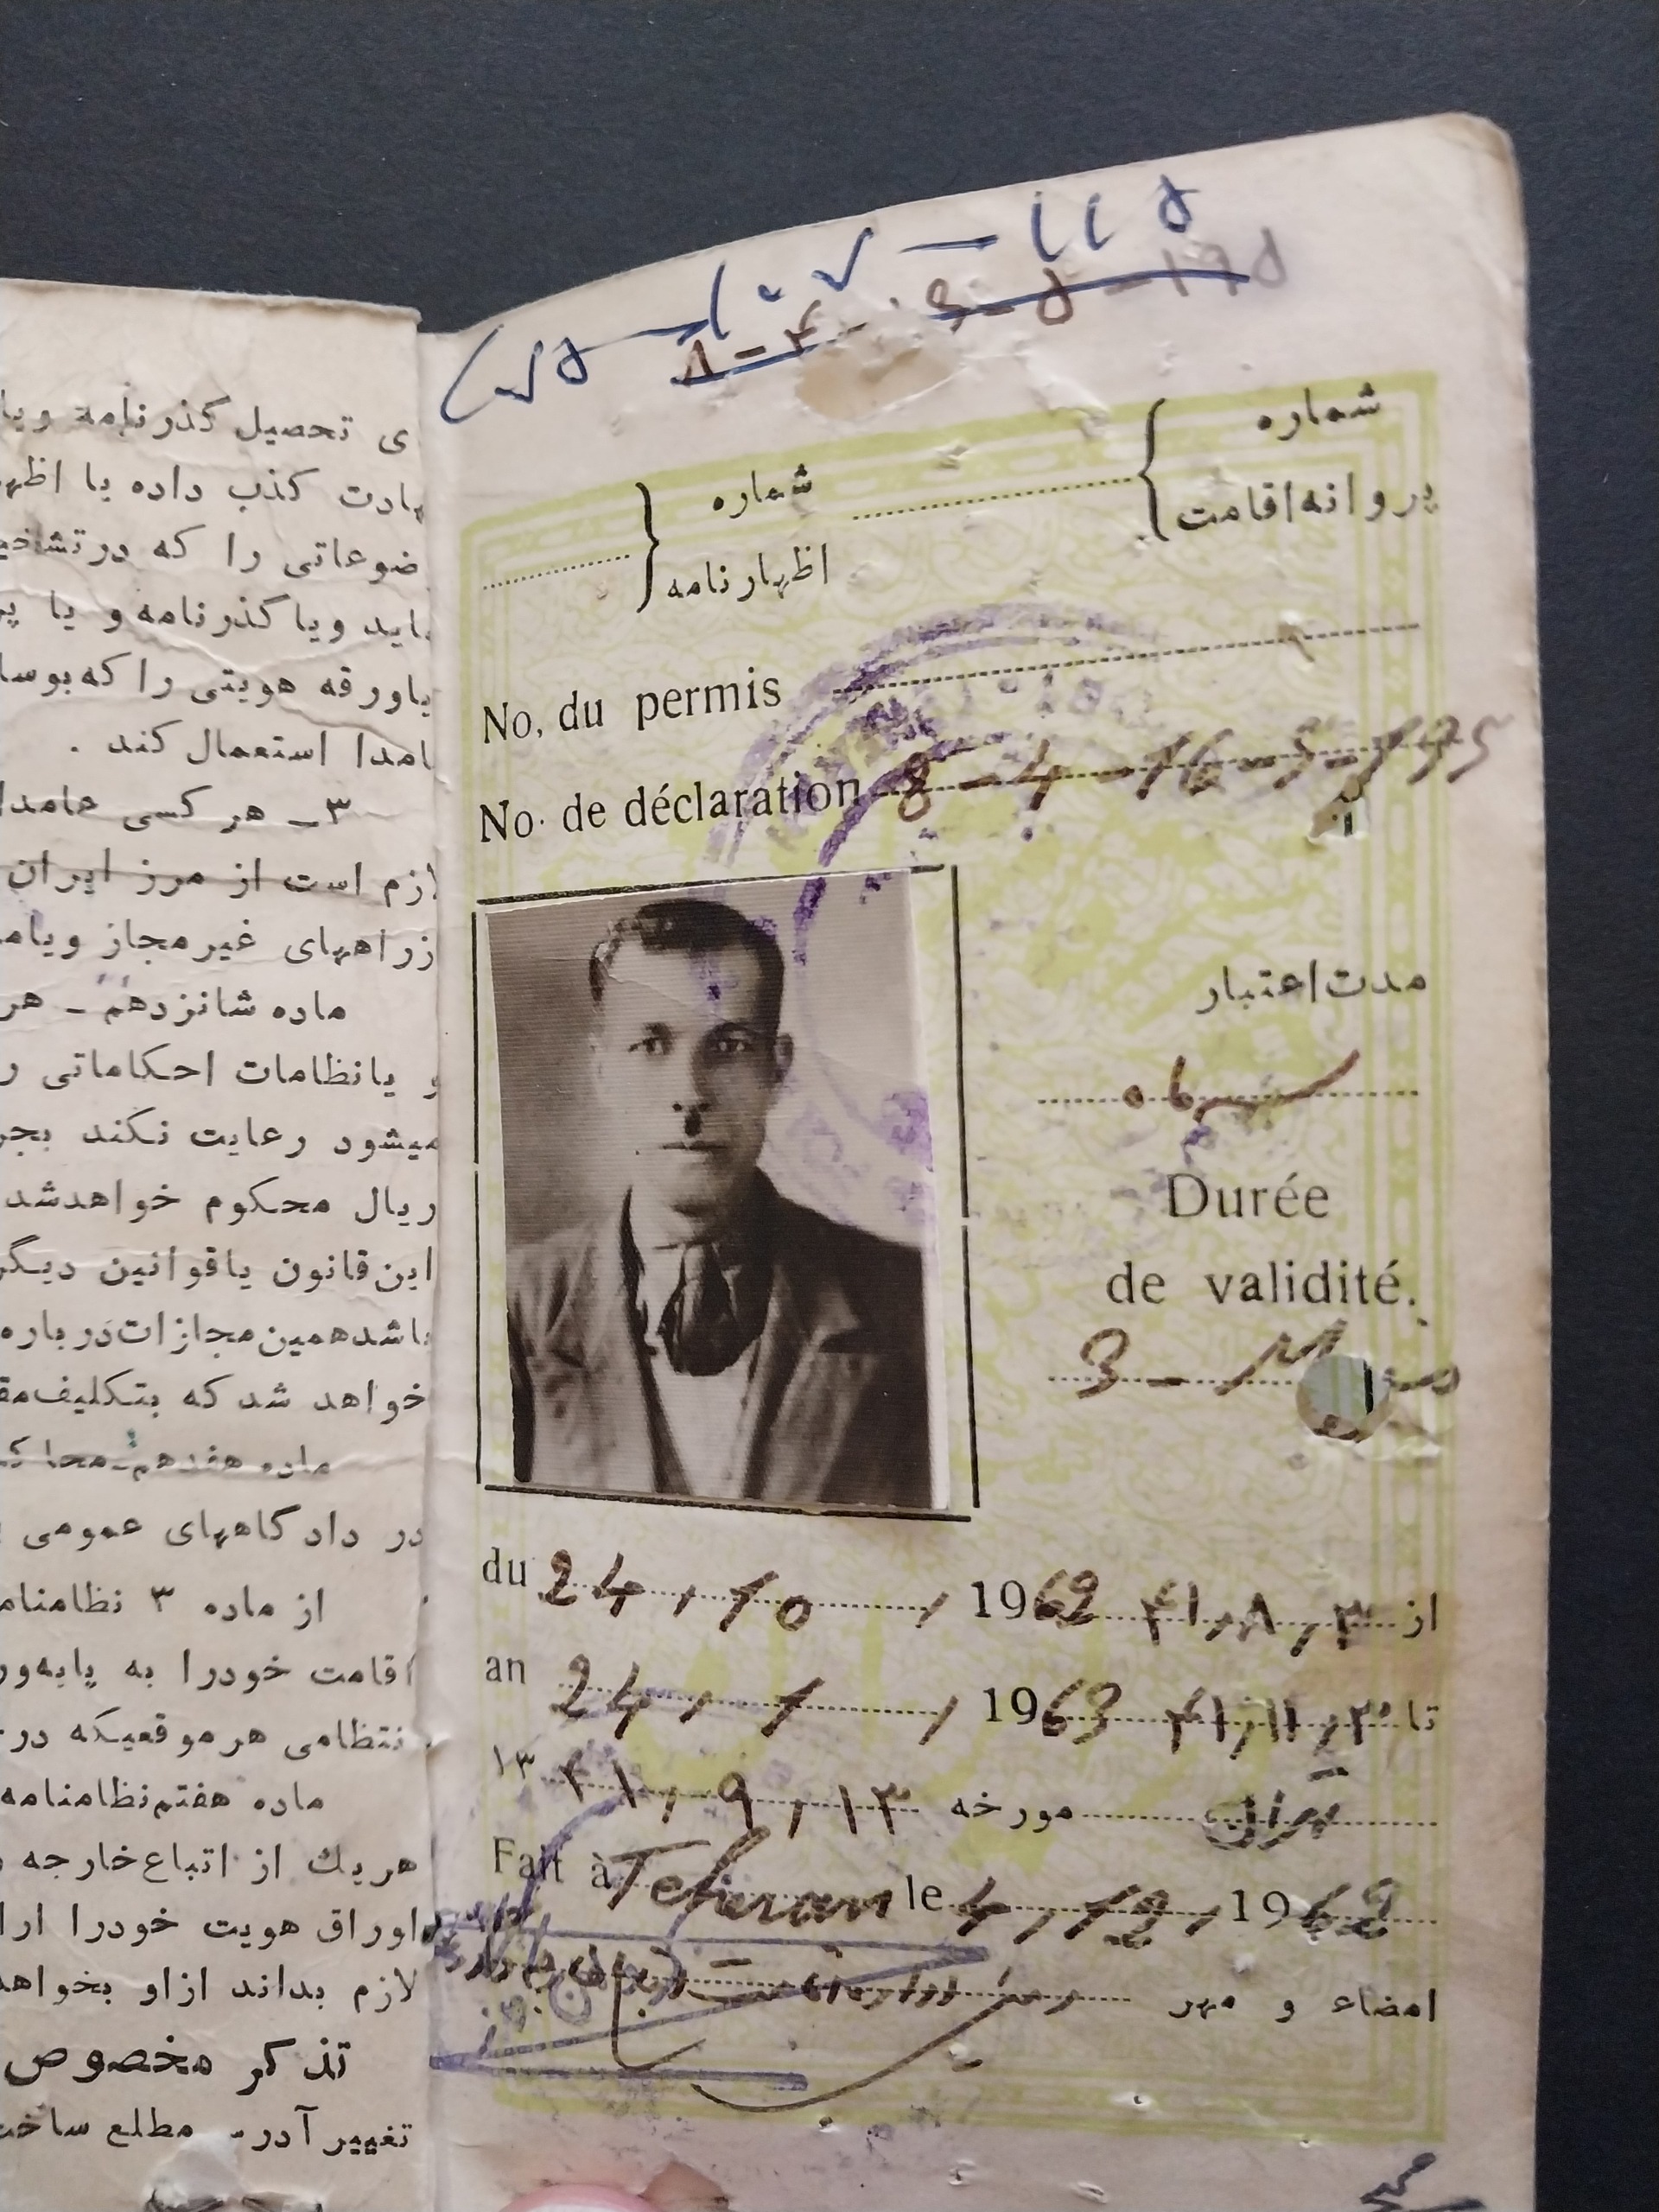 ی تحصیل گذرنامه ویا
هادت کذب داده یا اظه
ضوعاتی را که درتشاخی
ید ویا گذرنامه و یا
یاورقه هویتی را که بوسا
امدا استعمال کند .
۳ـ هر کسی عامدا
لازم است از مرز ایران
ازراههای غیرمجاز ویا
ماده شانزدهم ـ هر
و یانظامات احکاماتی ر
میشود رعایت نکند بجر
ریال محکوم خواهدشد
این قانون یاقوانین دیگر
باشدهمین مجازات درباره
خواهد شد که بتکلیف
ماده هفدهم ـ محا
در دادگاههای عمومی
از ماده ۳ نظامنام
اقامت خودرا به
انتظامی هر موقعیکه در
ماده هفتم نظامنامه
هریك از اتباع خارجه
اوراق هویت خودرا ارا
لازم بداند ازاو بخواهد
تذکر مخصوص
تغییر آدر ـ مطلع ساخت
۱۱۵
۸-۴-۱۶-۵-۱۹۵
شماره
پروانه اقامت
شماره
اظهارنامه
No. du permis
No. de déclaration 8-4-16-5-195
مدت اعتبار
سه ماه
Durée
de validité.
3 - M
du 24, 10, 1962 از ۴۱,۸,۳
an 24, 1, 1963 تا ۴۱,۱۱,۳
تهران مورخه ۱۳۴۱,۹,۱۳
Fait à Teheran le 4, 12, 1962
امضاء و مهر